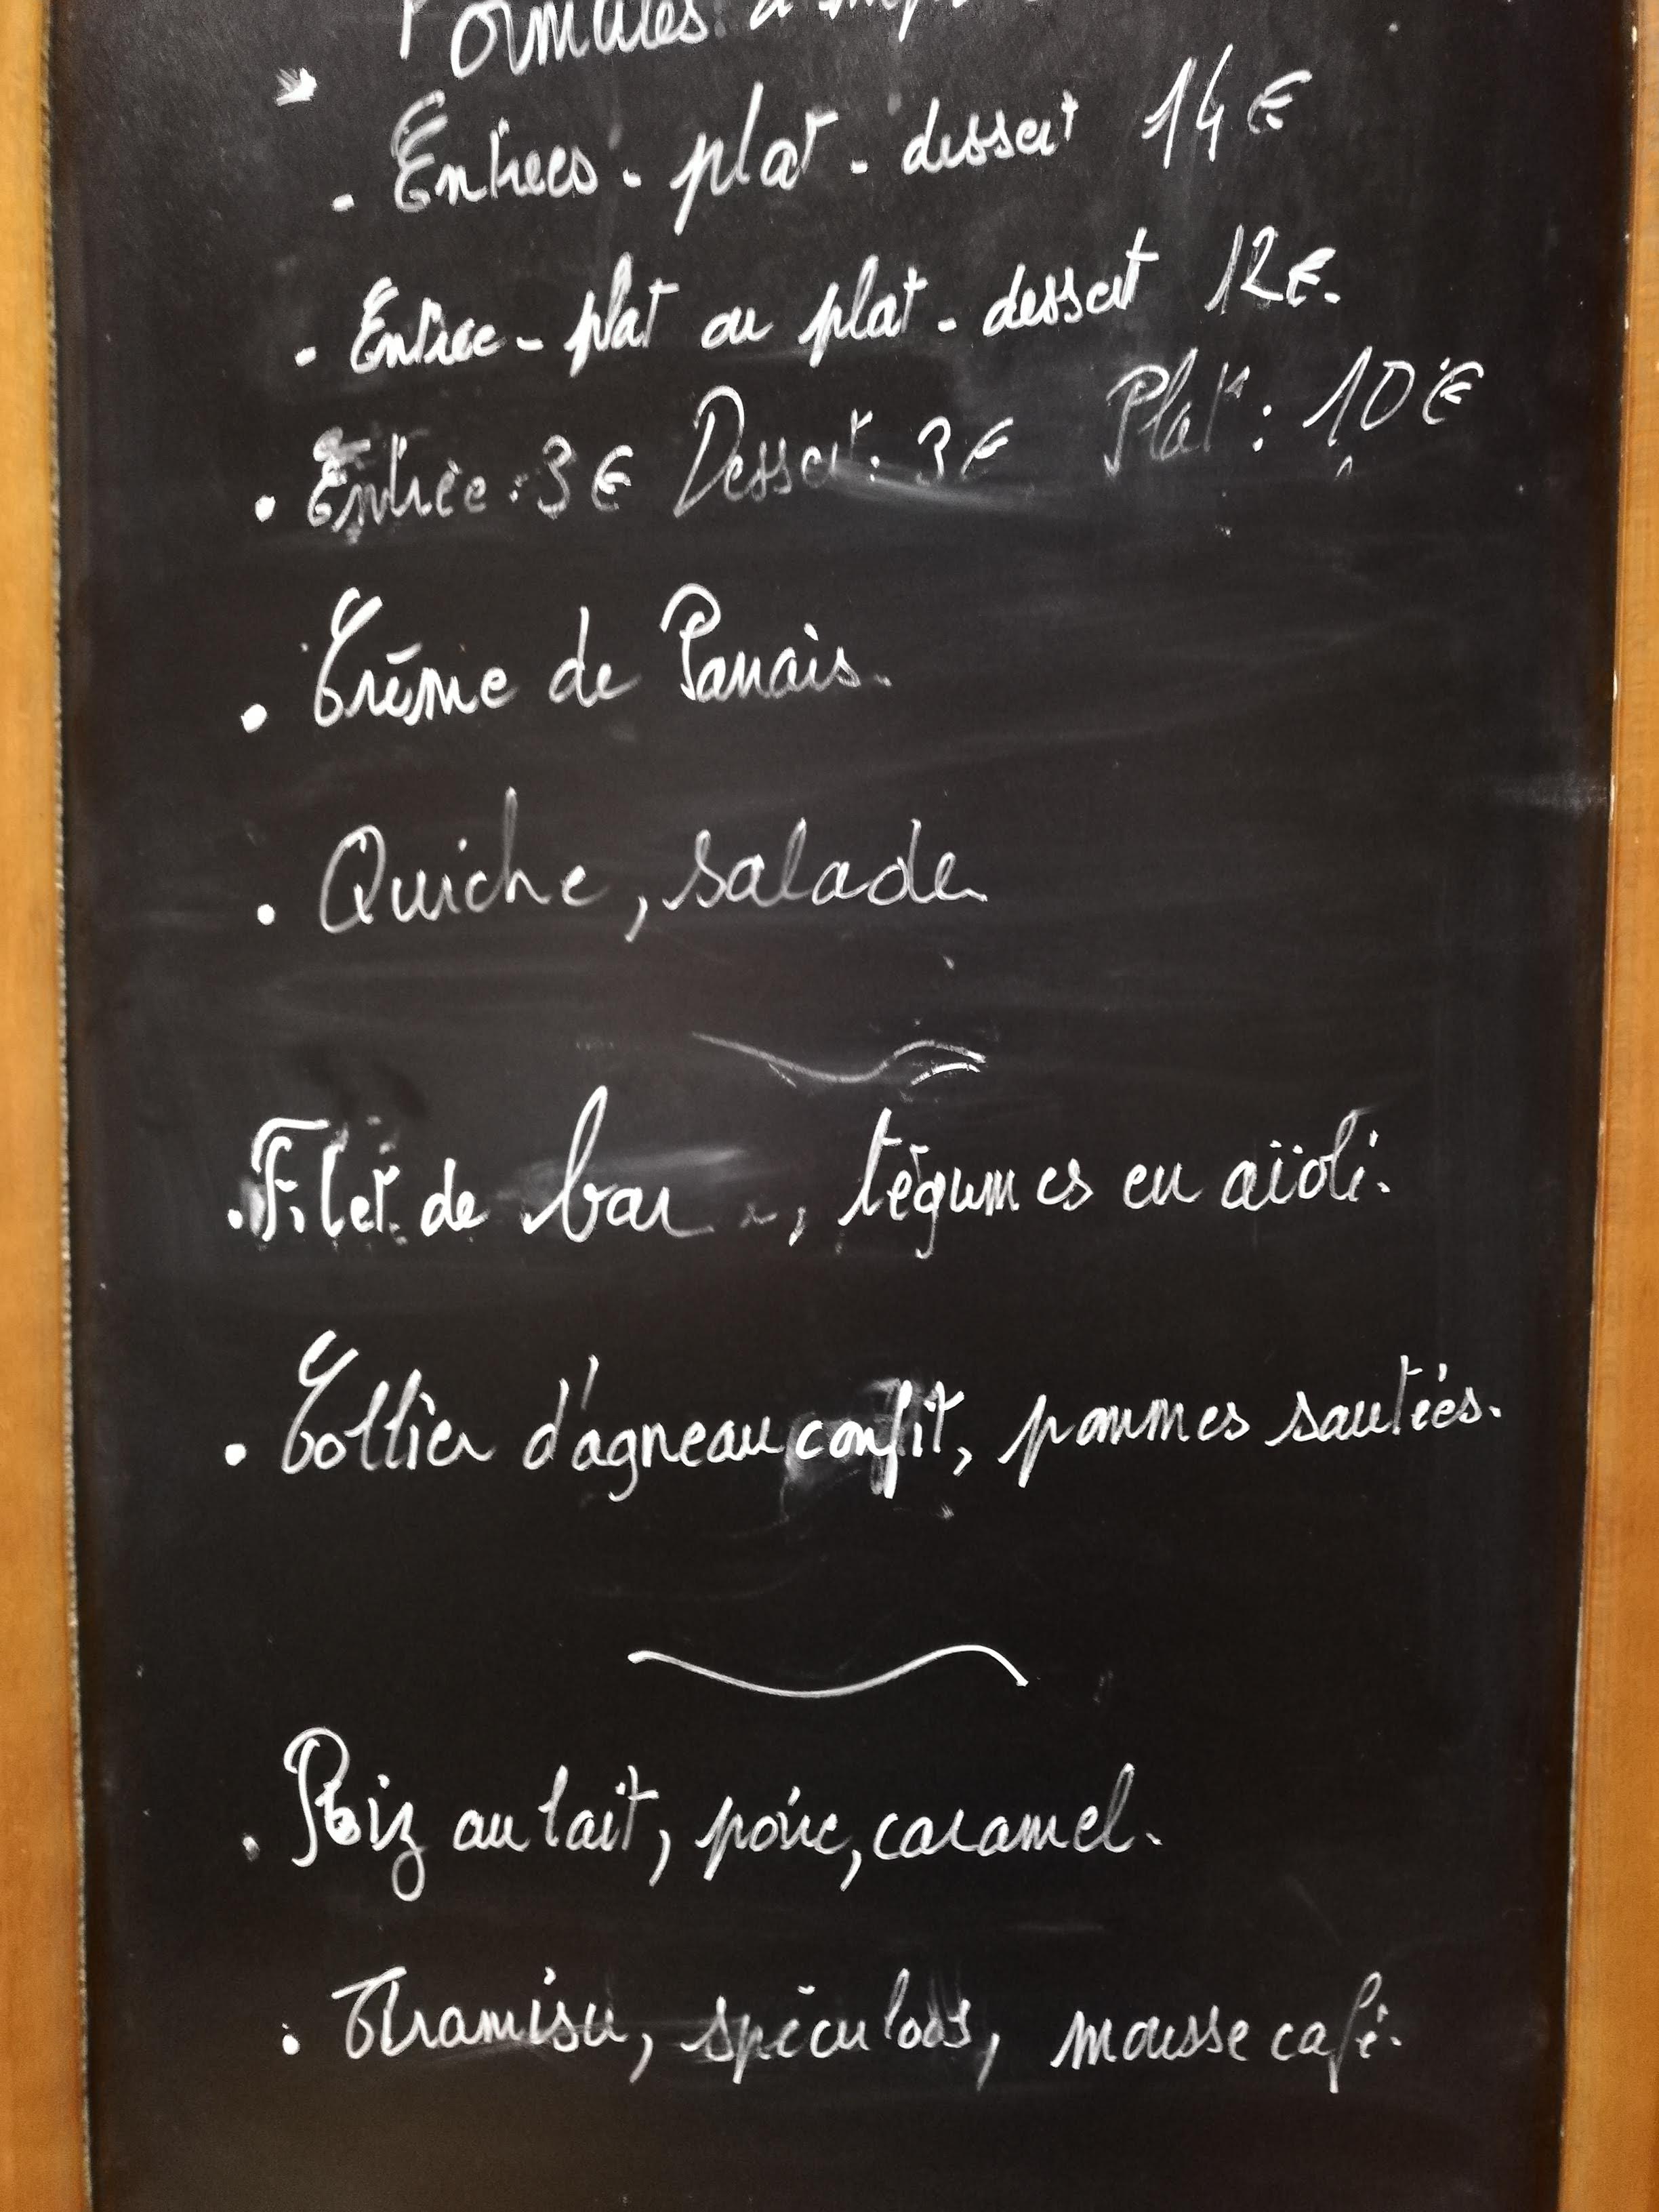 Formules à
. Entrées - plat - dessert 14€
. Entrée - plat ou plat - dessert 12€.
. Entrée : 3€ Dessert : 3€ Plat : 10€
. Crème de Panais.
. Quiche, salade
. Filet de bar, légumes en aïoli.
. Collier d'agneau confit, pommes sautées.
. Riz au lait, poire, caramel.
. Tiramisu, spéculoos, mousse café.